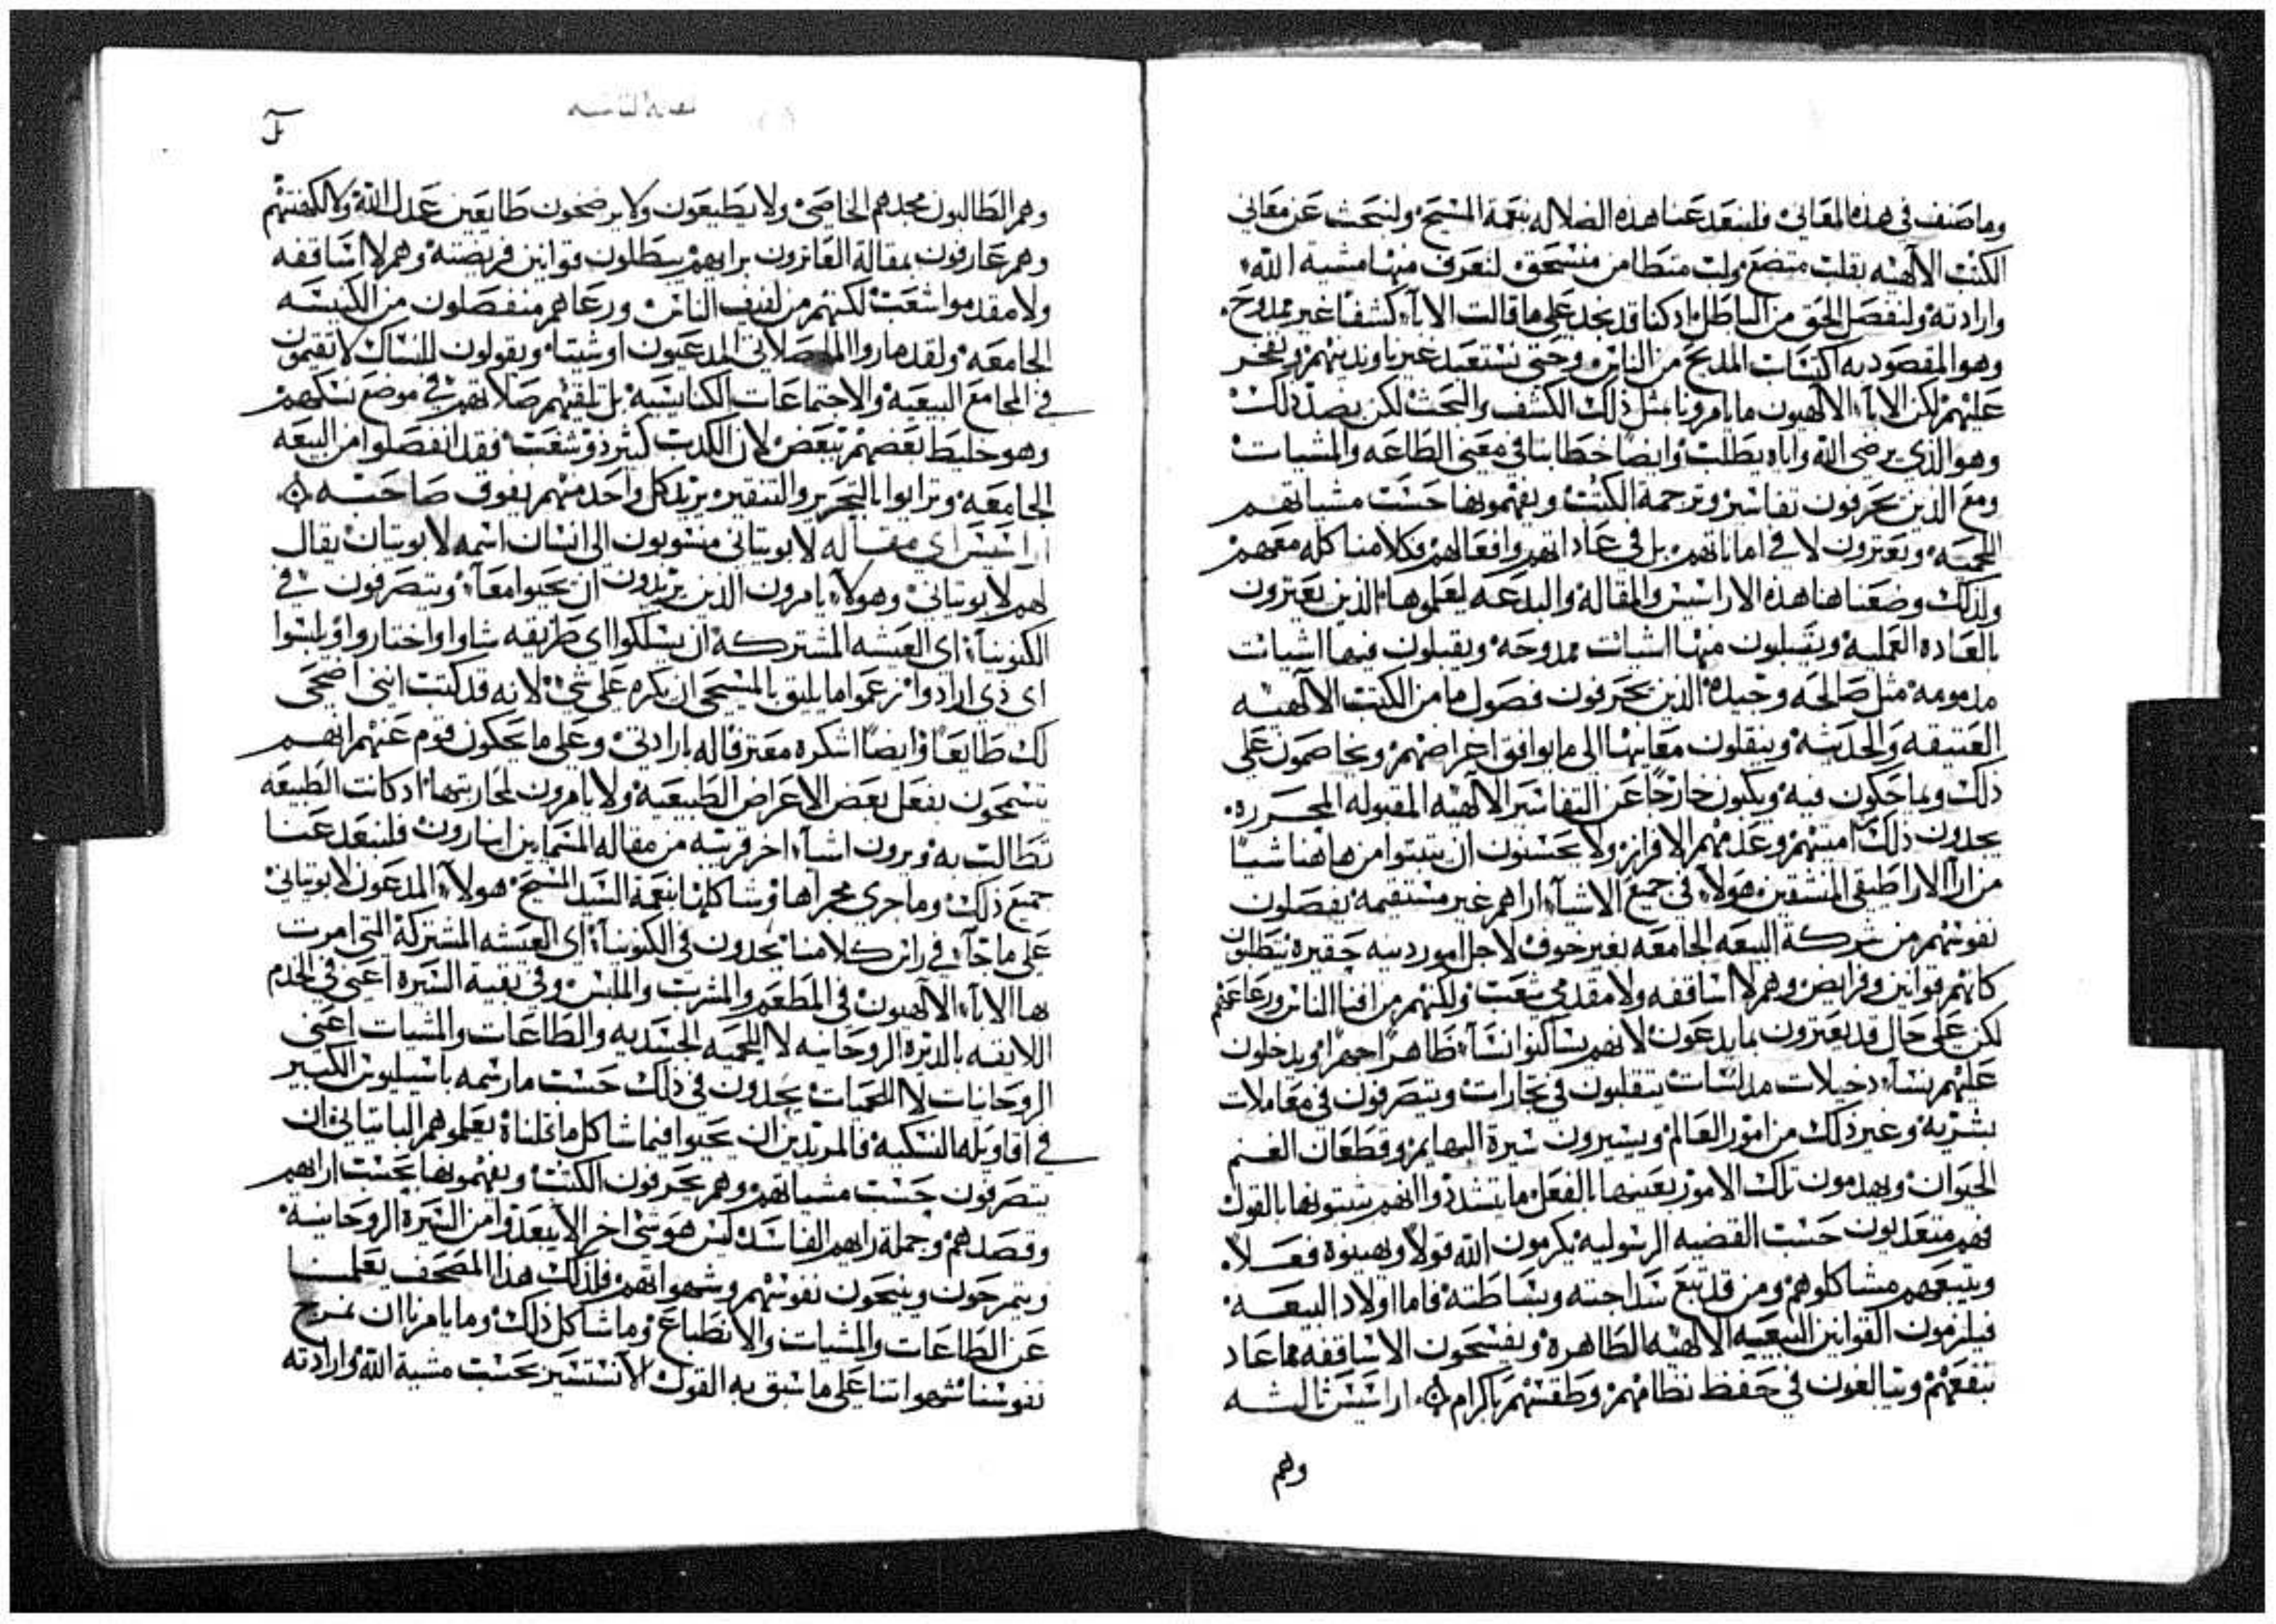 وما صنف في هذه المعاني فلنبعد عنا هذه الضلاله بنعمة المسيح ولنبحث عن معاني
الكتب الالهيه بقلب متضع ولب متطامن منسحق لنعرف منها مشية الله
وارادته ولنفصل الحق من الباطل اذ كنا قد نجد على ما قالت الاباء كشفا غير ممدوح
وهو المقصود به اكتساب المديح من الناس وحتى نستعبد غيرنا ونديهم ونفخر
عليهم لكن الاباء الالهيون ما يامرونا مثل ذلك الكشف والبحث لكن بضد ذلك
وهو الذي يرضي الله واياه يطلب وايضا خطابنا في معنى الطاعه والمشيات
ومع الذين يحرفون تفاسير وترجمة الكتب ويفهمونها حسب مشياتهم
اللحميه ويعترون لا في اماناتهم بل في عاداتهم وافعالهم وكلامنا كله معهم
ولذلك وضعنا هنا هذه الاراسيس والمقاله والبدعه ليعلموها الذين يعترون
بالعاده العمليه ويقبلون منها اشيات ممدوحه ويقبلون فيها اشيات
مذمومه مثل صالحه وجيده الذين يحرفون فصول ما من الكتب الالهيه
العتيقه والحديثه وينقلون معانيها الى ما يوافق اغراضهم ويخاصمون على
ذلك وبما حكون فيه ويكون خارجا عن التفاسير الالهيه المقبوله المحرره
يجدون ذلك امنيتهم وعدمهم الافراز ولا يحسنون ان يثبتوا من هاهنا شيا
من ارا الاراطيقي المنشقين هولاء في جميع الاشياء اراهم غير مستقيمه يفصلون
نفوسهم من شركة البيعه الجامعه بغير خوف لاجل امور دنيه حقيره يبطلون
كانهم قوانين وفرايض وهم لا اساقفه ولا مقدمي شعب ولكنهم من افنا الناس ورعاعهم
لكن على حال قد يعترون بما يدعون لانهم يساكنوا نساء ظاهرا جهرا ويدخلون
عليهم نساء دخيلات مدلسات يتقلبون في تجارات ويتصرفون في معاملات
بشريه وغير ذلك من امور العالم ويسيرون سيرة البهايم وقطعان الغنم
الحيوان ويهدمون تلك الامور بعينها بالفعل ما يتشددوا انهم يثبتونها بالقول
فهم متعدلون حسب القضيه الرسوليه يكرمون الله قولا ويهينوه فعلا
ويتبعهم مشاكلوهم ومن قد تبع سذاجته وبساطته فاما اولاد البيعه
فيلزمون القوانين البيعيه الالهيه الطاهره ويفسحون الاساقفه مما عاد
بنفعهم ويبالغون في حفظ نظامهم وطقسهم باكرام اراسيس ثالثه
وهم
وهم الطالبون مجدهم الخاصي ولا يطيعون ولا يرضخون طايعين عدل الله ولا لكهنتهم
وهم عارفون بمقالة الفاترون برايهم يبطلون قوانين فريضته وهم لا اساقفه
ولا مقدموا شعب لكنهم من لفيف الناس ورعاهم منفصلون من الكنيسه
الجامعه ولقد ماروا المصلاني المدعيون اوشيتا ويقولون للنساك لا تقيمون
في المجامع البيعيه والاجتماعات الكنايسيه بل تلقيهم صلاتهم في موضع نسكهم
وهو خليط بعضهم ببعض لان الكذب كثير ذو شعب فقد انفصلوا من البيعه
الجامعه وترابوا بالتحرير والتنقير يريد كل واحد منهم يفوق صاحبه
اراسيس اي مقاله لابويتاني منسوبون الى انسان اسمه لابويتان يقال
لهم لابويتاني وهولاء يامرون الذين يريدون ان يحيوا معا ويتصرفون في
الكنوبيا اي العيشه المشتركه ان يسلكوا اي طريقه شاوا واختاروا ويلبسوا
اي زي ارادوا زعموا ما يليق بالمسيحي ان يكره على شي لانه قد كتب انني اضحي
لك طايعا وايضا اشكره معترفا له بارادتي وعلى ما يحكون قوم عنهم انهم
يسمحون بفعل بعض الاعراض الطبيعيه ولا يامرون لمحاربتها اذ كانت الطبيعه
تطالب به ويرون اشياء اخر قريبه من مقاله المتماين انبارون فلنبعد عنا
جميع ذلك وما جرى مجراها وشاكلها بنعمة السيد المسيح هولاء المدعون لابويتاني
على ما جاء في راس كلامنا يجدون في الكنوبيا اي العيشه المشتركة التي امرت
بها الاباء الالهيون في المطعم والمشرب والملبس وفي بقية السيره اعني في الخدم
اللايقه بالديره الروحانيه لا اللحميه الجسديه والطاعات والمشيات اعني
الروحانيات لا اللحميات يجدون في ذلك حسب ما رسمه باسيليوس الكبير
في اقاويله النسكيه فالمريدين ان يحيوا فيما شاكل ما قلناه يعلموهم اللابتياني ان
يتصرفون حسب مشياتهم وهم يحرفون الكتب ويفهمونها بحسب ارايهم
وقصدهم وجملة رايهم الفاسد ليس هو شي اخر الا يبعدوا من السيرة الروحانيه
ويتمرجون ويتيحون نفوسهم وشهواتهم فلذلك هذا المصحف يعلمنا
عن الطاعات والمشيات والانطباع وما شاكل ذلك وما يامرنا ان نمرج
نفوسنا شهواتنا على ما سبق به القول لانستسير بحسب مشية الله وارادته